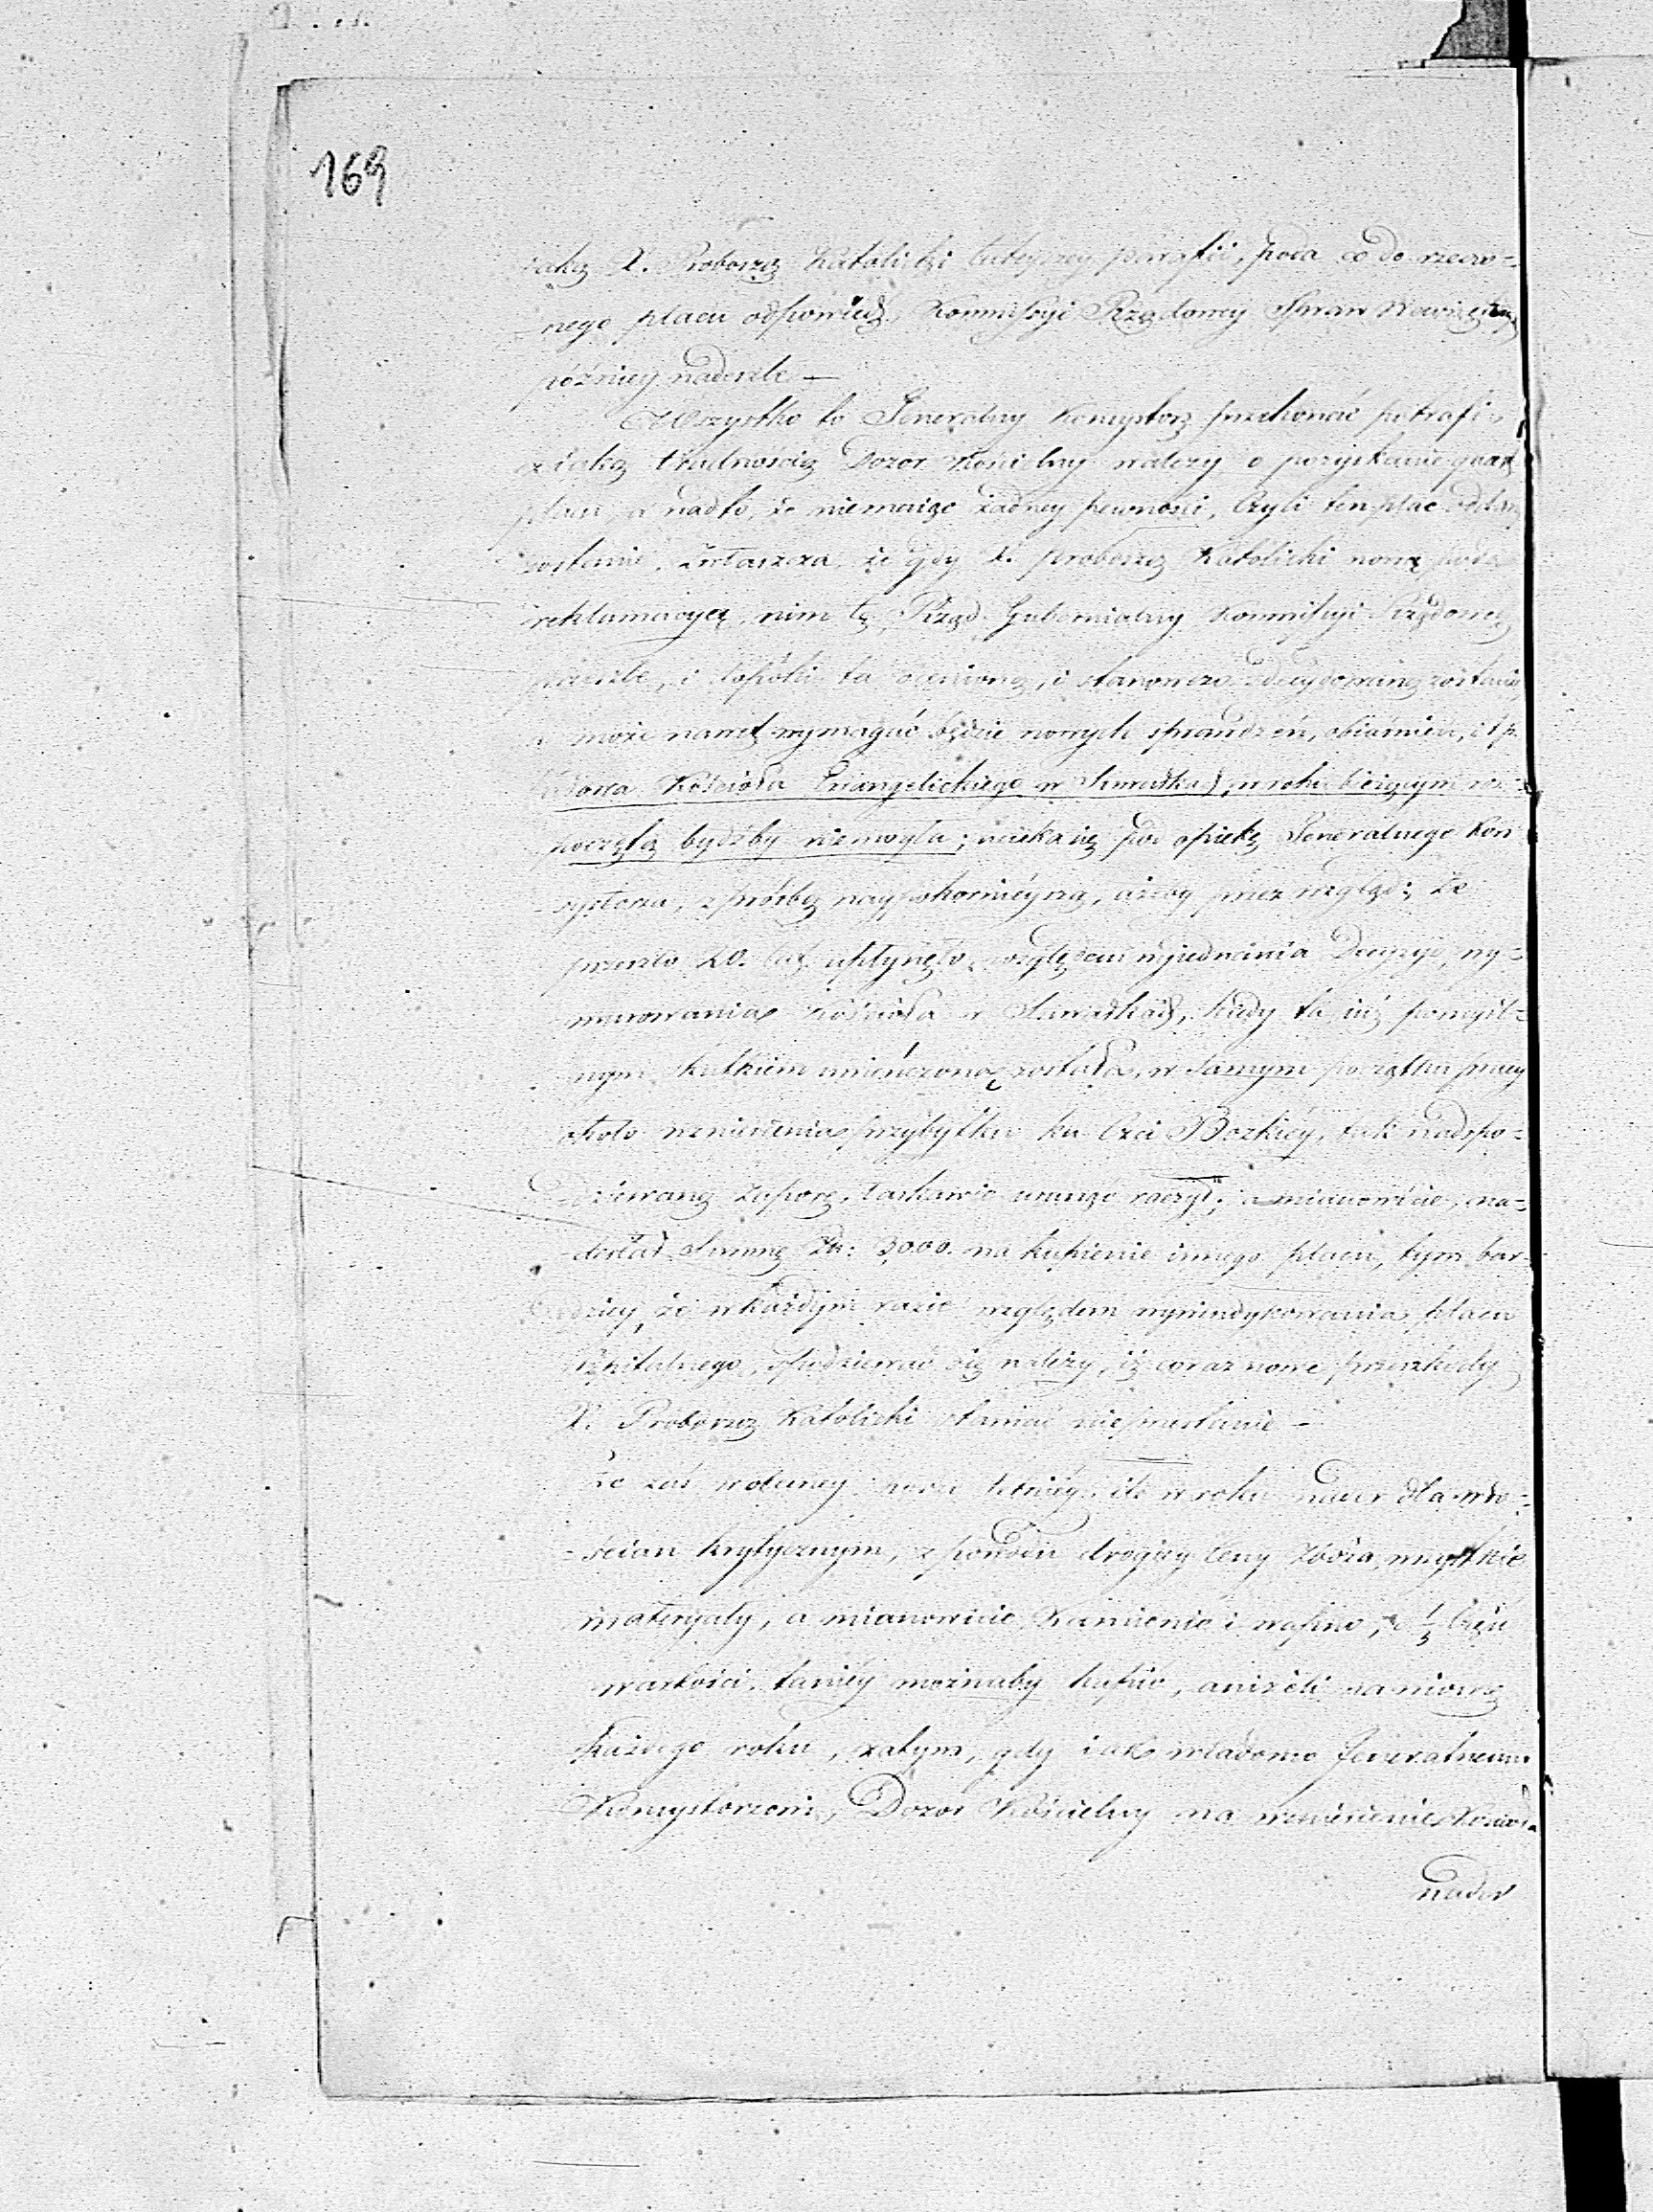 169
iaką X. Proboszcz Katolicki tuteyszey parafii, poda co do rzeczo-
nego placu odpowiedź, Kommissyi Rządowey Spraw Wewnętrz
późniey nadeszle —
Wszystko to Generalny Konsystorz przekonać potrafi,
z iaką trudnością Dozor Kościelny walczy o pozyskanie
placu, a nadto, że niemaiąc żadney pewności, czyli ten plac oddany
zostanie, zwłaszcza, że gdy X. proboszcz Katolicki nową poda
reklamacyą, nim tę Rząd Gubernialny Kommissyi Rządowey
prześle, i dopóki ta ocenioną, i stanowczo zdecydowaną zostanie,
a może nawet wymagać będzie nowych sprawdzeń, obiaśnień, i t p.
Kościoła Ewangelickiego w Suwałkach, w roku bieżącym roz-
poczętą bydźby niemogła; ucieka się pod opiekę Generalnego Kon
systorza, z prośbą naypokornieyszą, ażeby przez wzgląd: że
przeszło 20. lat upłynęło, względem wyjednania Decyzyi, wy-
murowania kościoła w Suwałkach, kiedy ta iuż pomyśl-
nym skutkiem uwieńczoną została, w samym początku pracy
około wzniesienia przybytku ku Czci Bozkiéy, tak nadspo-
dziewaną zaporę, łaskawie usunąć raczył; a mianowicie, na-
desłał Summę Zł: 3000. na kupienie innego placu, tym bar-
dziey, że w każdym razie względem wywindykowania placu
szpitalnego, spodziewać się należy, iż coraz nowe przeszkody
X. Proboszcz Katolicki stawiać nieprzestanie —
Że zaś w obecney porze letniéy, ile w roku nader dla wło-
ścian krytycznym, z powodu drogiey Ceny Zboża, wszystkie
materyały, a mianowicie Kamienie i wapno, o ⅓ Części
wartości, taniéy możnaby kupić, aniżeli
każdego roku, zatym, gdy iak wiadomo Generalnemu
Konsystorzowi, Dozór Kościelny na wzniesienie Kościoła
nader